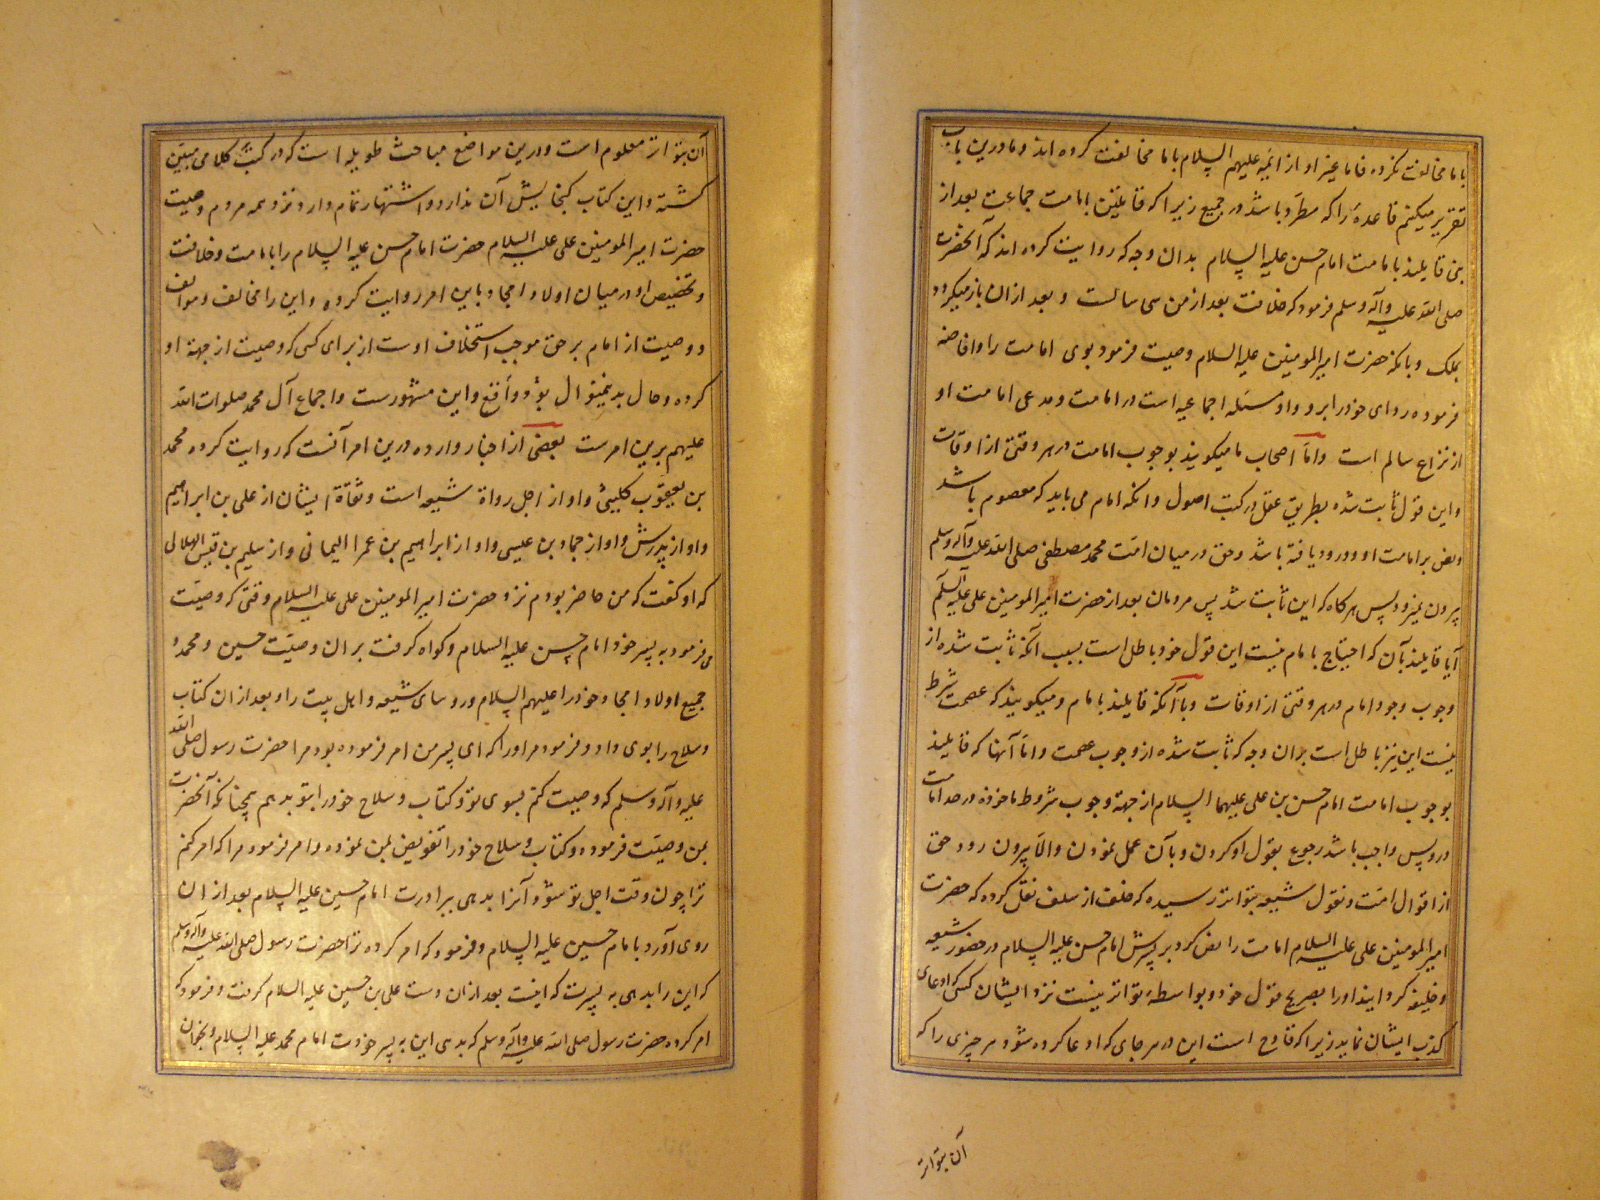 با ما مخالفت نکرده فاما غیر او از ائمه علیهم السلام با ما مخالفت کرده اند و ما درین باب
تقریر میکنم قاعدهٔ را که مطرد باشد در جمیع زیرا که قایلین بامامت جماعت بعد از
نبی قایلند بامامت امام حسن علیه السلام بدان وجه که روایت کرده اند که آنحضرت
صلی الله علیه وآله وسلم فرمود که خلافت بعد از من سی سالست و بعد از ان باز میگردد
بملک و بانکه حضرت امیرالمومنین علیه السلام وصیت فرمود بوی امامت را وافاضه
فرموده ردای خود را برو واو مسئله اجماعیه است در امامت ومدعی امامت او
از نزاع سالم است واما اصحاب ما میکویند بوجوب امامت در هر وقتی از اوقات
واین قول ثابت شده بطریق عقل در کتب اصول وانکه امام می باید که معصوم باشد
ونص بر امامت او ورود یافته باشد وحق در میان امت محمد مصطفی صلی الله علیه وآله وسلم
بیرون نمیرود پس هرکاه که این ثابت شد پس مردمان بعد از حضرت امیرالمومنین علی علیه السلم
آیا قایلند بآن که احتیاج بامام نیست این قول خود باطل است بسبب آنکه ثابت شده از
وجوب وجود امام در هر وقتی از اوقات ویا آنکه قایلند بامام ومیکویند که عصمت شرط
نیست این نیز باطل است بدان وجه که ثابت شده از وجوب عصمت واما آنها که قایلند
بوجوب امامت امام حسن بن علی علیهما السلام از جهة وجوب شروط ماخوذه در حد امامت
درو پس واجب باشد رجوع بقول او کردن وبآن عمل نمودن والا بیرون رود حق
از اقوال امت ونقول شیعه بتواتر رسیده که خلف از سلف نقل کرده که حضرت
امیرالمومنین علی علیه السلام امامت را نص کرد بر پسرش امام حسن علیه السلام در حضور شیعه
وخلیفه کردانید او را بصریح قول خود وبواسطهٔ تواتر نیست نزد ایشان کسی که ادعای
کذب ایشان نماید زیرا که قادح است این در هر جای که ادعا کرده شود هر چیزی را که
آن بتواتر
آن بتواتر معلوم است ودرین مواضع مباحث طویله است که در کتب کلامی مبین
کشته واین کتاب کنجایش آن ندارد واشتهار تمام دارد نزد همه مردم وصیت
حضرت امیرالمومنین علی علیه السلام حضرت امام حسن علیه السلام را بامامت وخلافت
وتخصیص او در میان اولاد امجاد باین امر روایت کرده واین را مخالف وموالف
ووصیت از امام بر حق موجب استخلاف اوست از برای کسی که وصیت از جهة او
کرده وحال بدینمنوال بود وواقع واین مشهورست واجماع آل محمد صلوات الله
علیهم برین امرست بعضی از اخبار وارده درین امر آنست که روایت کرده محمد
بن یعقوب کلینی واو از اجل رواة شیعه است وثقاة ایشان از علی بن ابراهیم
واو از پدرش واو از حماد بن عیسی واو از ابراهیم بن عمر الیمانی واز سلیم بن قیس الهلالی
که او کفت که من حاضر بودم نزد حضرت امیرالمومنین علی علیه السلام وقتی که وصیت
می فرمود به پسر خود امام حسن علیه السلام وکواه کرفت بران وصیت حسین ومحمد و
جمیع اولاد امجاد خود را علیهم السلام وروسای شیعه واهل بیت را وبعد ازان کتاب
وسلاح را بوی داد وفرمود مر اورا که ای پسر من امر فرموده بود مرا حضرت رسول صلی الله
علیه وآله وسلم که وصیت کنم بسوی تو وکتاب وسلاح خود را بتو بدهم همچنانکه آنحضرت
بمن وصیت فرموده وکتاب وسلاح خود را تفویض بمن نموده وامر فرمود مرا که امر کنم
ترا چون وقت اجل تو شود آنرا بدهی ببرادرت امام حسین علیه السلام بعد از ان
روی آورد بامام حسین علیه السلام وفرمود که امر کرده ترا حضرت رسول صلی الله علیه وآله وسلم
که این را بدهی به پسرت که اینست بعد ازان دست علی بن حسین علیه السلام کرفت وفرمود که
امر کرده حضرت رسول صلی الله علیه وآله وسلم که بدهی این به پسر خودت امام محمد علیه السلام